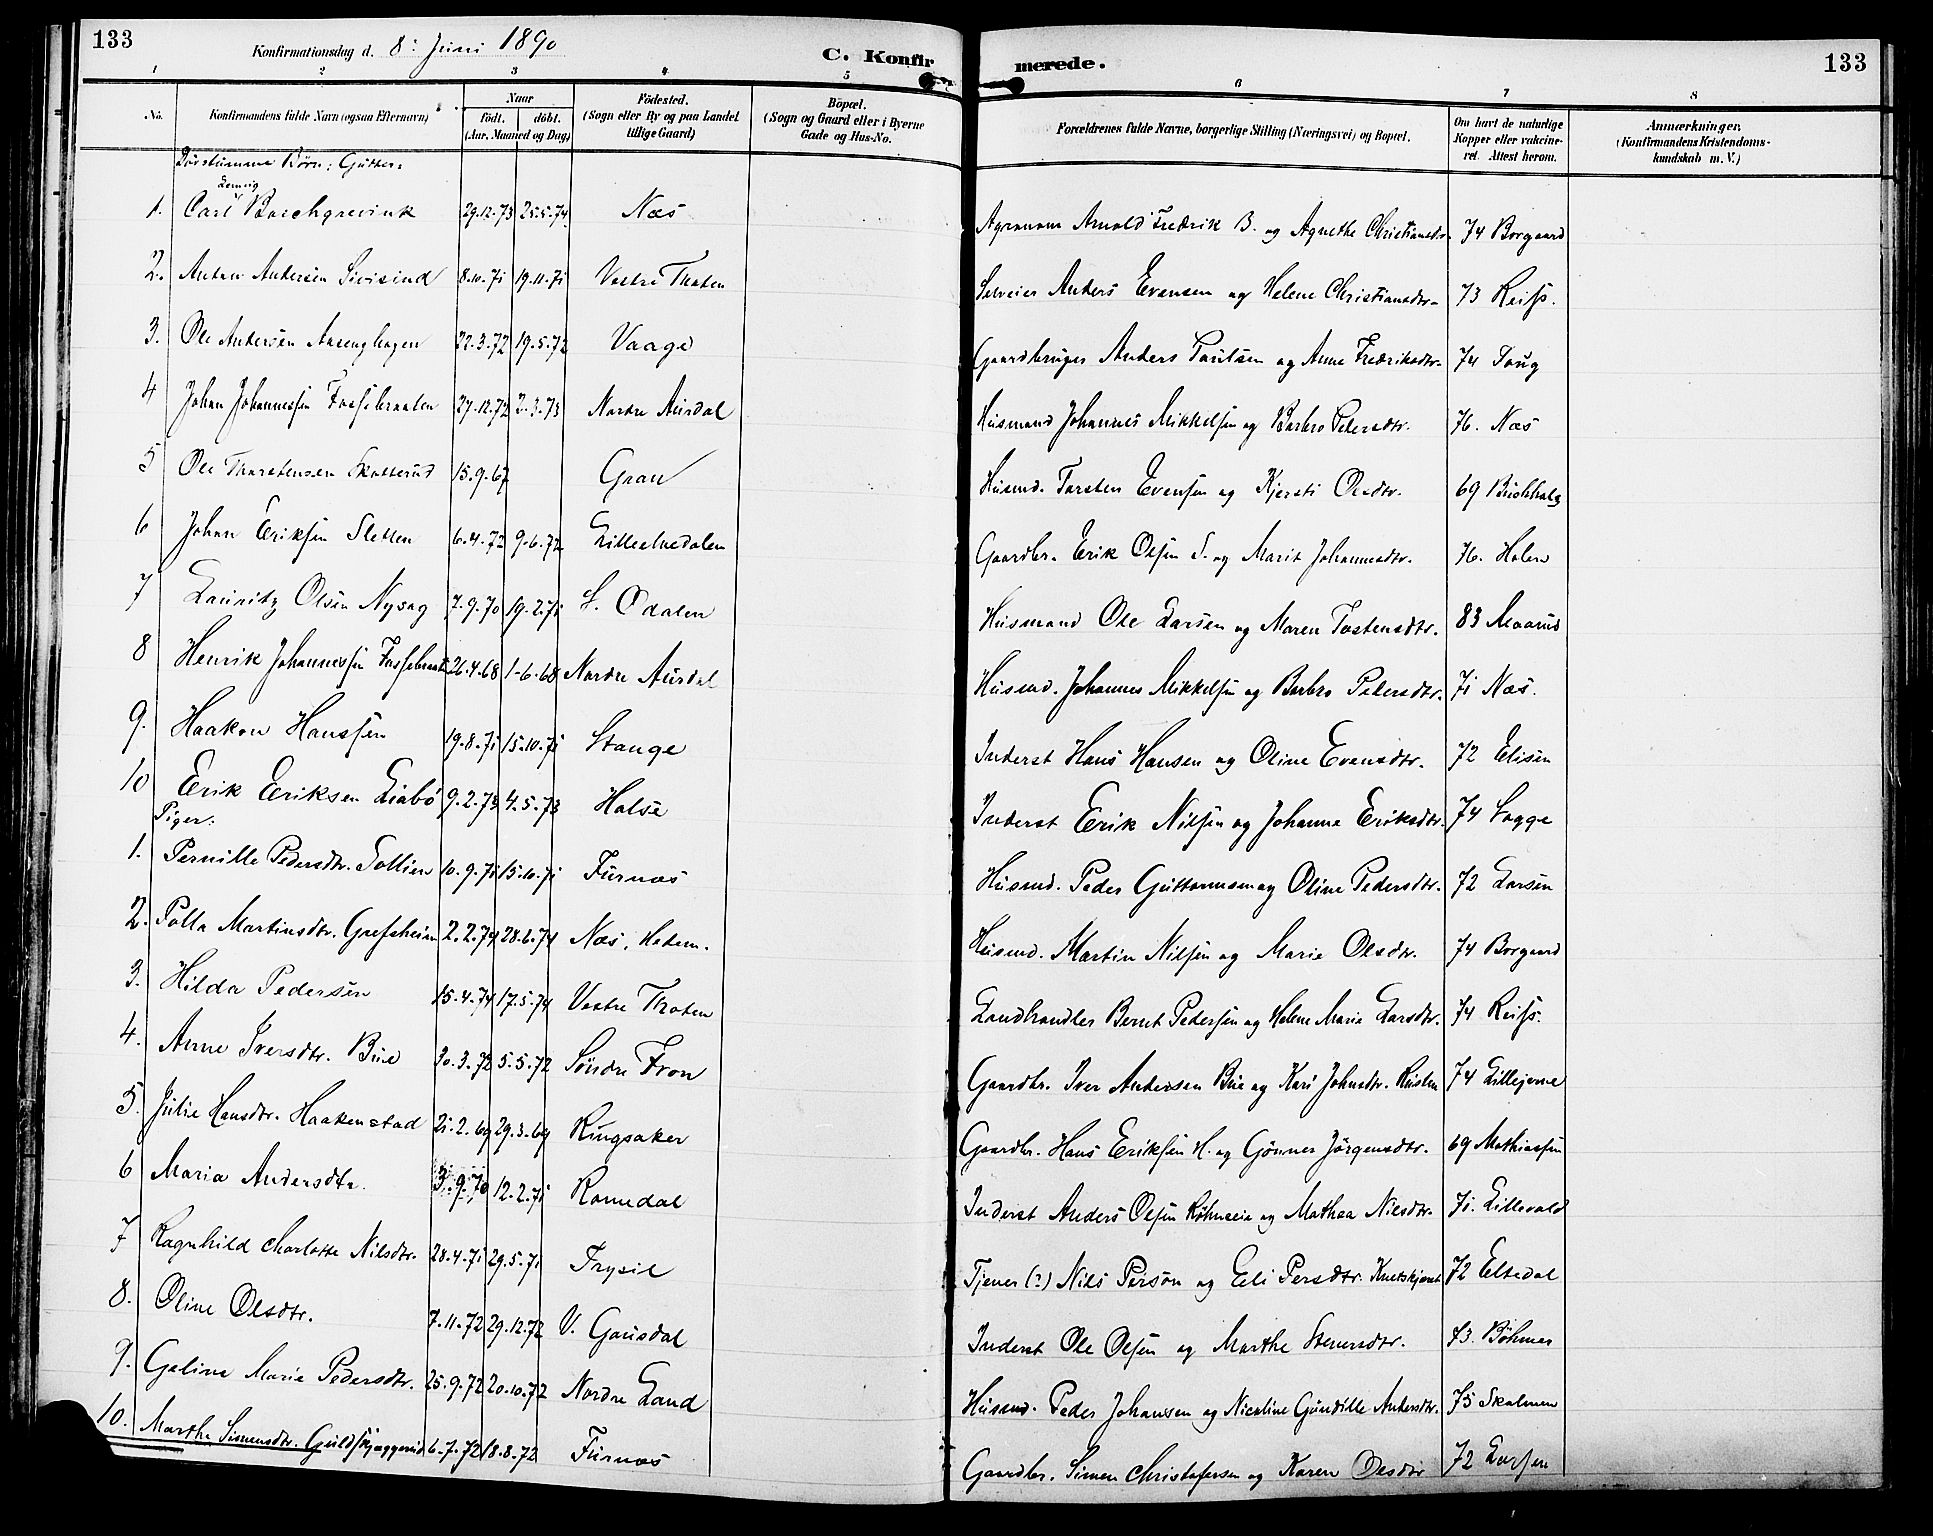 133
Konfirmationsdag d. 8: Juni 1890
C. Konfir
merede.
133
1 2 3 4 5 6 7 8
No.
Konfirmandens fulde Navn (ogsaa Efternavn)
Naar
födt. döbt.
(Aar, Maaned og Dag)
Födested.
(Sogn eller By og paa Landet
tillige Gaard)
Bopæl.
(Sogn og Gaard eller i Byerne
Gade og Hus-No.
Forældrenes fulde Navne, borgerlige Stilling (Næringsvei) og Bopæl.
Om havt de naturlige
Kopper eller vakcine-
ret. Attest herom.
Anmærkninger.
(Konfirmandens Kristendoms-
kundskab m. V.)
Døvstumme Børn: Gutter:
1. Carl Borchgrevink 29.12.73 25.5.74 Næs Agronom Arnold Fredrik B. og Agnethe Christiansdtr. 74 Borgaard
2. Anton Andersen Sivisind 8.10.71 19.11.71 Vestre Thoten Selveier Anders Evensen og Helene Christiansdtr. 73 Reiss.
3. Ole Andersen Aasenghagen 22.3.72 19.5.72 Vaage Gaardbruger Anders Paulsen og Anne Fredriksdtr. 74
4 Johan Johannessen Fossebraaten 27.12.72 2.3.73 Nordre Aurdal Husmand Johannes Mikkelsen og Barbro Pedersdtr. 76. Næs
5 Ole Thorstensen Skatterud 15.9.67 Gran Husmd. Torsten Evensen og Kjersti Olsdtr. 69 Buchholz
6 Johan Eriksen Sletten 6.4.72 9.6.72 Lilleelvedalen Gaardbr. Erik Olsen S. og Marit Johannesdtr. 76. Holen
7 Lauritz Olsen Nysag 7.9.70 19.2.71 S. Odalen Husmand Ole Larsen og Maren Tostensdtr. 83 Maarud
8 Henrik Johannessen Fossebraaten 26.4.68 1.6.68 Nordre Aurdal Husmd. Johannes Mikkelsen og Barbro Pedersdtr. 71 Næs.
9. Haakon Hanssen 19.8.71 15.10.71 Stange Inderst Hans Hansen og Oline Evensdtr. 72 Elisen
10 Erik Eriksen Liabö 9.2.73 4.5.73 Halse Inderst Erik Nilsen og Johanne Eriksdtr. 74 Sagge
Piger:
1. Pernille Pedersdtr. Sollien 10.9.71 15.10.71 Furnæs Husmd. Peder Guttormsen og Oline Pedersdtr. 72 Larsen
2. Polla Martinsdtr. Grefsheim 2.2.74 28.6.74 Næs, Hedem. Husmd. Martin Nilsen og Marie Olsdtr. 74 Borgaard
3. Hilda Pedersen 15.4.74 17.5.74 Vestre Thoten Landhandler Bernt Pedersen og Helene Marie Larsdtr. 74 Reiss.
4. Anne Iversdtr. Bue 30.3.72 5.5.72 Söndre Fron Gaardbr. Iver Andersen Bue og Kari Johnsdtr. Husten 74 Lillejerne
5. Julie Hansdtr. Haakenstad 21.2.69 29.3.69 Ringsaker Gaardbr. Hans Eriksen H. og Gönner Jörgensdtr. 69 Mathiassen
6 Maria Andersdtr. 3.9.70 12.2.71 Romedal Inderst Anders Olsen og Mathea Nilsdtr. 71. Lillevold
7 Ragnhild Charlotte Nilsdtr. 28.4.71 29.5.71 Trysil Tjener (?) Nils Person og Eli Persdtr. 72 Eltedal
8. Oline Olsdtr. 7.11.72 29.12.72 V. Gausdal Inderst Ole Olsen og Marthe Stenersdtr. 73. Böhmer
9. Galina Marie Pedersdtr. 25.9.72 20.10.72 Nordre Land Husmd. Peder Johansen og Nicoline Gundille Andersdtr. 75 Skolmen
10. Marthe Simensdtr. Guldskjæggerud 6.7.72 18.8.72 Furnæs Gaardbr. Simen Christofersen og Karen Olsdtr 72 Larsen